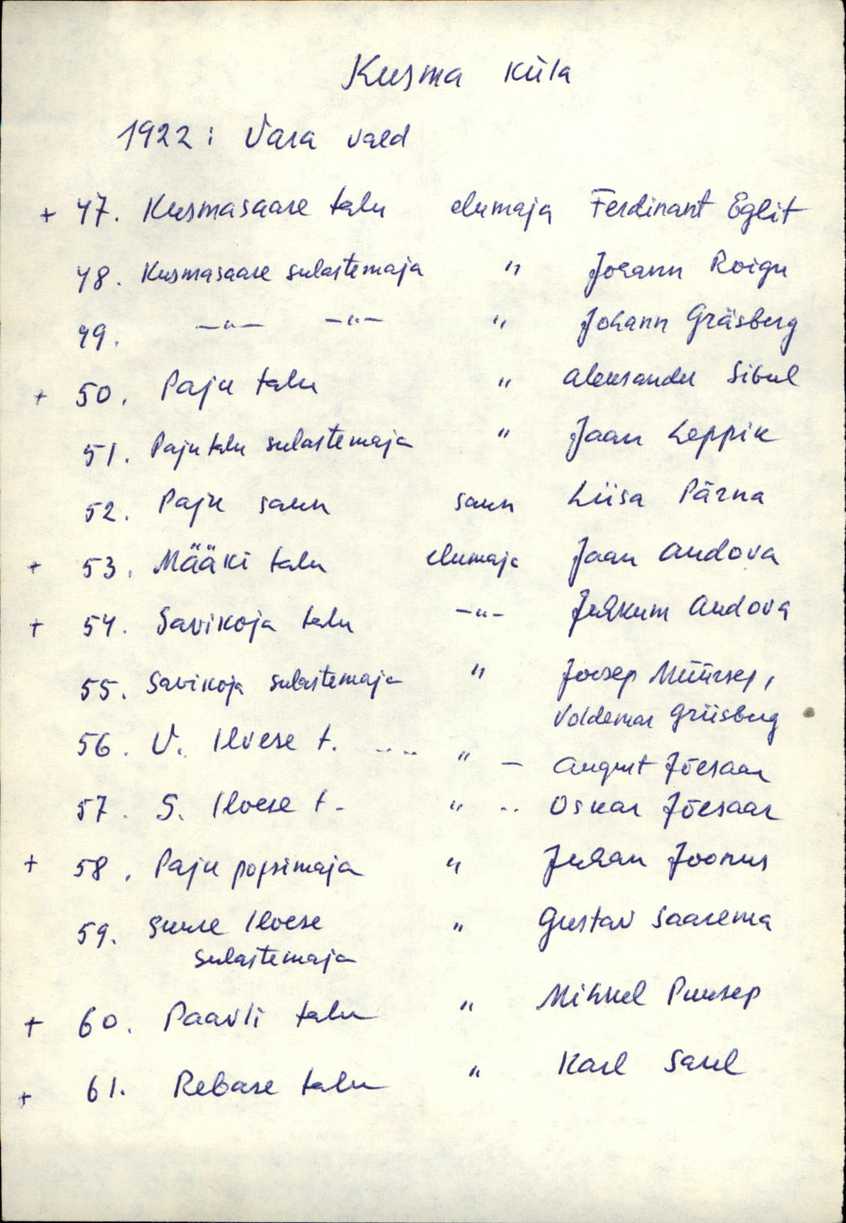 Kusma küla
1922: Vara vald
+ 47. Kusmasaare talu elumaja Ferdinant Eglit
48. Kusmasaare sulastemaja " Johann Roigu
49. —"— —"— " Johann Gräsberg
+ 50. Paju talu " Aleksander Sibul
51. Paju talu sulastemaja " Jaan Leppik
52. Paju saun saun Liisa Pärna
+ 53. Määki talu elumaja Jaan Andova
+ 54. Savikoja talu —"— Juhkum Andova
55. Savikoja sulastemaja " Joosep Müürsep,
Voldemar Griisberg
56. V. Ilvese t. .... " — August Jõesaar
57. S. Ilvese t. " .. Oskar Jõesaar
+ 58. Paju popsimaja " Juhan Joonus
59. Suure Ilvese " Gustav Saarema
sulastemaja
+ 60. Paavli talu " Mihkel Puusep
+ 61. Rebase talu " Karl Saul